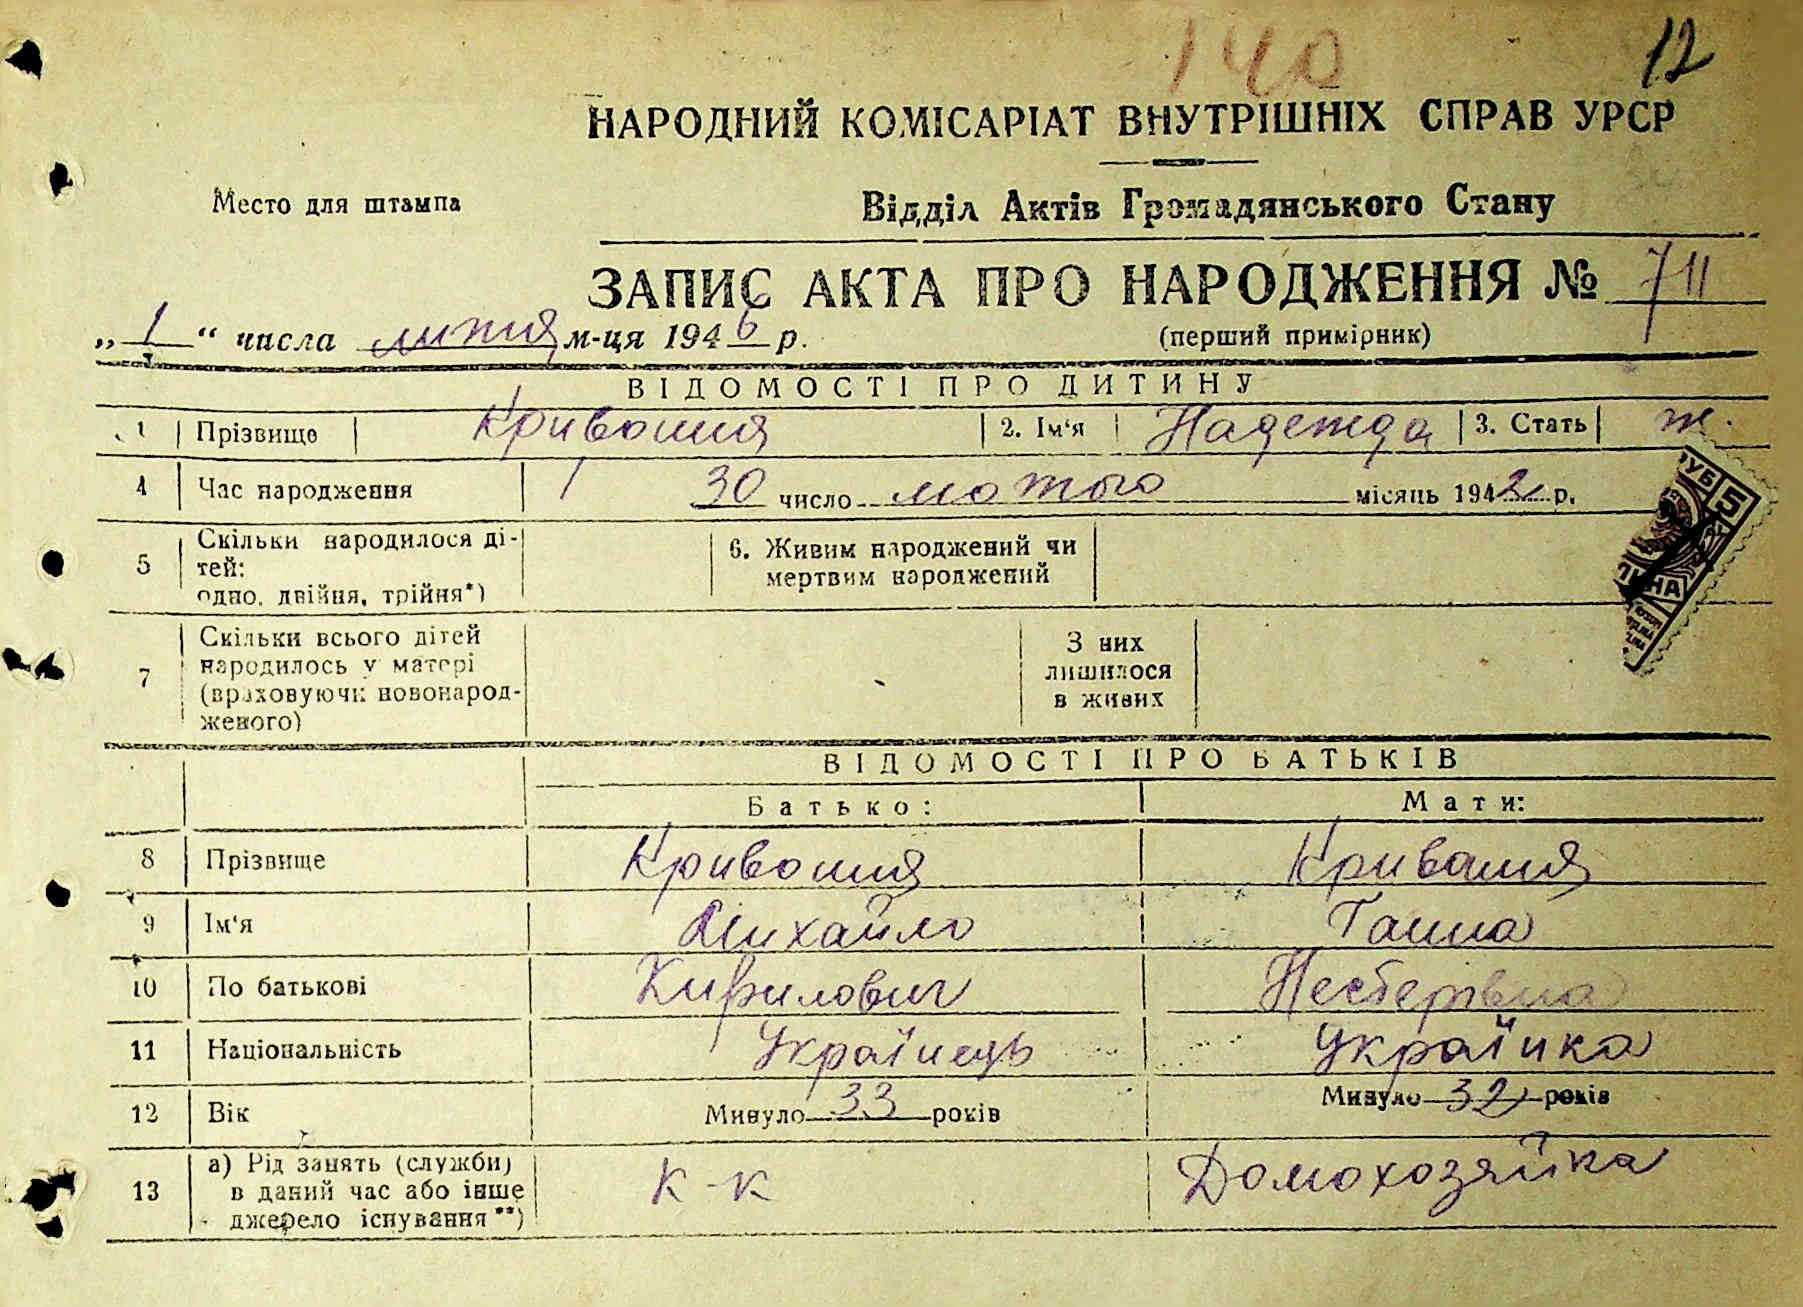 140 12
НАРОДНИЙ КОМІСАРІАТ ВНУТРІШНІХ СПРАВ УРСР
Место для штампа
Відділ Актів Громадянського Стану
ЗАПИС АКТА ПРО НАРОДЖЕННЯ № 711
„1“ числа липня м-ця 1946 р. (перший примірник)
ВІДОМОСТІ ПРО ДИТИНУ
1 Прізвище Кривошия 2. Ім‘я Надежда 3. Стать ж.
4 Час народження 30 число лютого місяць 1942 р.
5 Скільки народилося ді-
тей:
одно, двійня, трійня*)
6. Живим народжений чи
мертвим народжений
7 Скільки всього дітей
народилось у матері
(враховуючи новонарод-
женого)
З них
лишилося
в живих
РУБ 5
ВІДОМОСТІ ПРО БАТЬКІВ
Батько: Мати:
8 Прізвище Кривошия Кривошия
9 Ім‘я Михайло Ганна
10 По батькові Кирилович
11 Національність Українець Українка
12 Вік Минуло 33 років Минуло 32 років
13 а) Рід занять (служби)
в даний час або інше
джерело існування**)
к-к Домохозяйка